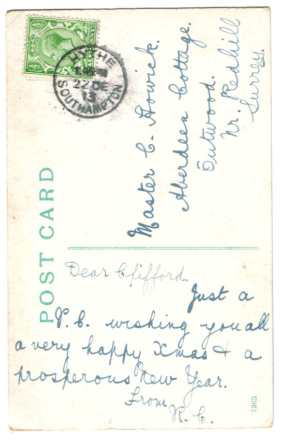 HYTHE
22 DE
13
SOUTHAMPTON
POST CARD
Master C. Howick.
Aberdeen Cottage.
Outwood.
Nr. Redhill
Surrey.
Dear Clifford.
Just a
P.C. wishing you all
a very happy Xmas & a
prosperous New Year.
From